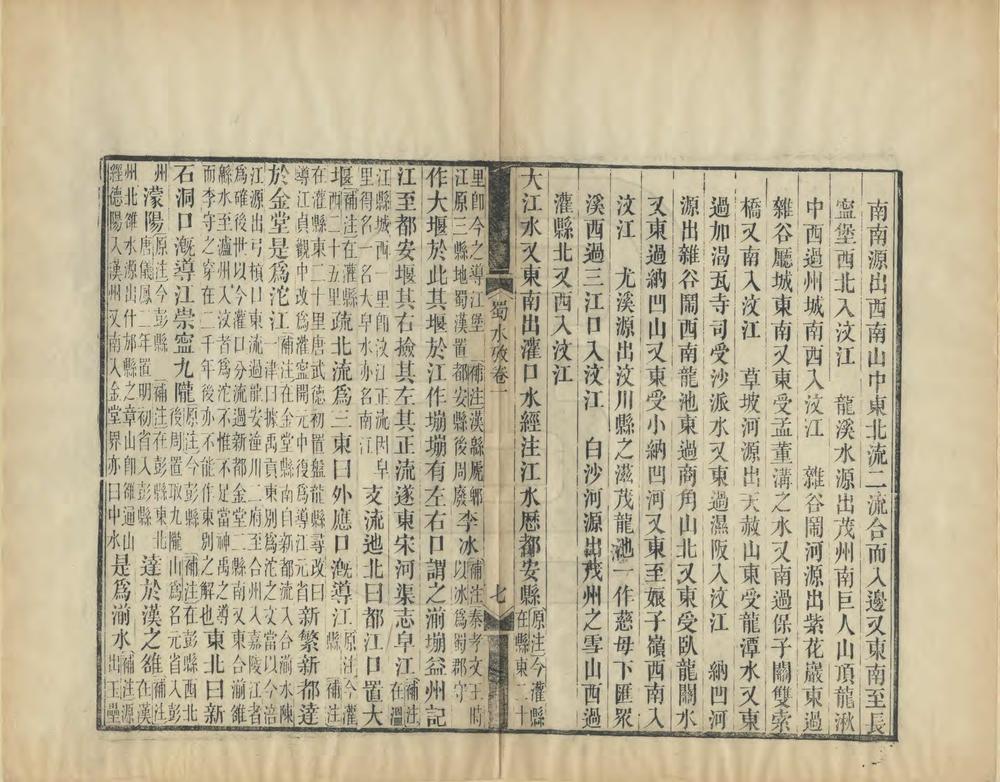 南南源出西南山中東北流二流合而入邊又東南至長
寧堡西北入汶江　龍溪水源出茂州南巨人山頂龍湫
中西過州城南西入汶江　雜谷鬧河源出紫花巖東過
雜谷廳城東南又東受孟董溝之水又南過保子關雙索
橋又南入汶江　草坡河源出天赦山東受龍潭水又東
過加渴瓦寺司受沙派水又東過濕阪入汶江　納凹河
源出雜谷鬧西南龍池東過商角山北又東受臥龍關水
又東過納凹山又東受小納凹河又東至娘子嶺西南入
汶江　尤溪源出汶川縣之滋茂龍池一作慈母下匯眾
溪西過三江口入汶江　白沙河源出茂州之雪山西過
灌縣北又西入汶江
大江水又東南出灌口水經注江水歷都安縣原注今灌縣在縣東二十
蜀水攷卷一　七
里即今之導江堡補注漢縣虒郫江原三縣地蜀漢置都安縣後周廢李冰補注秦孝文王時以冰為蜀郡守
作大堰於此其堰於江作堋堋有左右口謂之湔堋益州記
江至都安堰其右撿其左其正流遂東宋河渠志皁江補注在溫
江縣城西一里即汶江正流因皁里得名一名大皁水亦名南江支流迆北曰都江口置大
堰補注在灌縣西二十五里疏北流為三東曰外應口溉導江原注今灌縣補注
在灌縣東二十里唐武德初置盤龍縣尋改曰導江貞觀中改為灌寧開元中復為導江元省新繁新都達
於金堂是為沱江補注在金堂縣南自新都流入合湔水陳
江源出弓槓口東流過龍安潼川二府至合州入嘉陵江者為確後世以今灌口分流過新都金堂二縣南又東合湔雒
緜水至瀘州入汶者為沱不惟不是當神禹之導而李守之穿在二千年後亦不能作東別之解也東北曰新
石洞口溉導江崇寧九隴原注今彭縣補注在彭縣西北後周置取九隴山為名元省入彭
州濛陽原注今彭縣補注在彭縣東北唐儀鳳二年置明初省入彭縣達於漢之雒在漢
州北雒水源出什邡縣之章山即雒通山經德陽入漢州又南入金堂界亦曰中水是為湔水補注源出玉壘